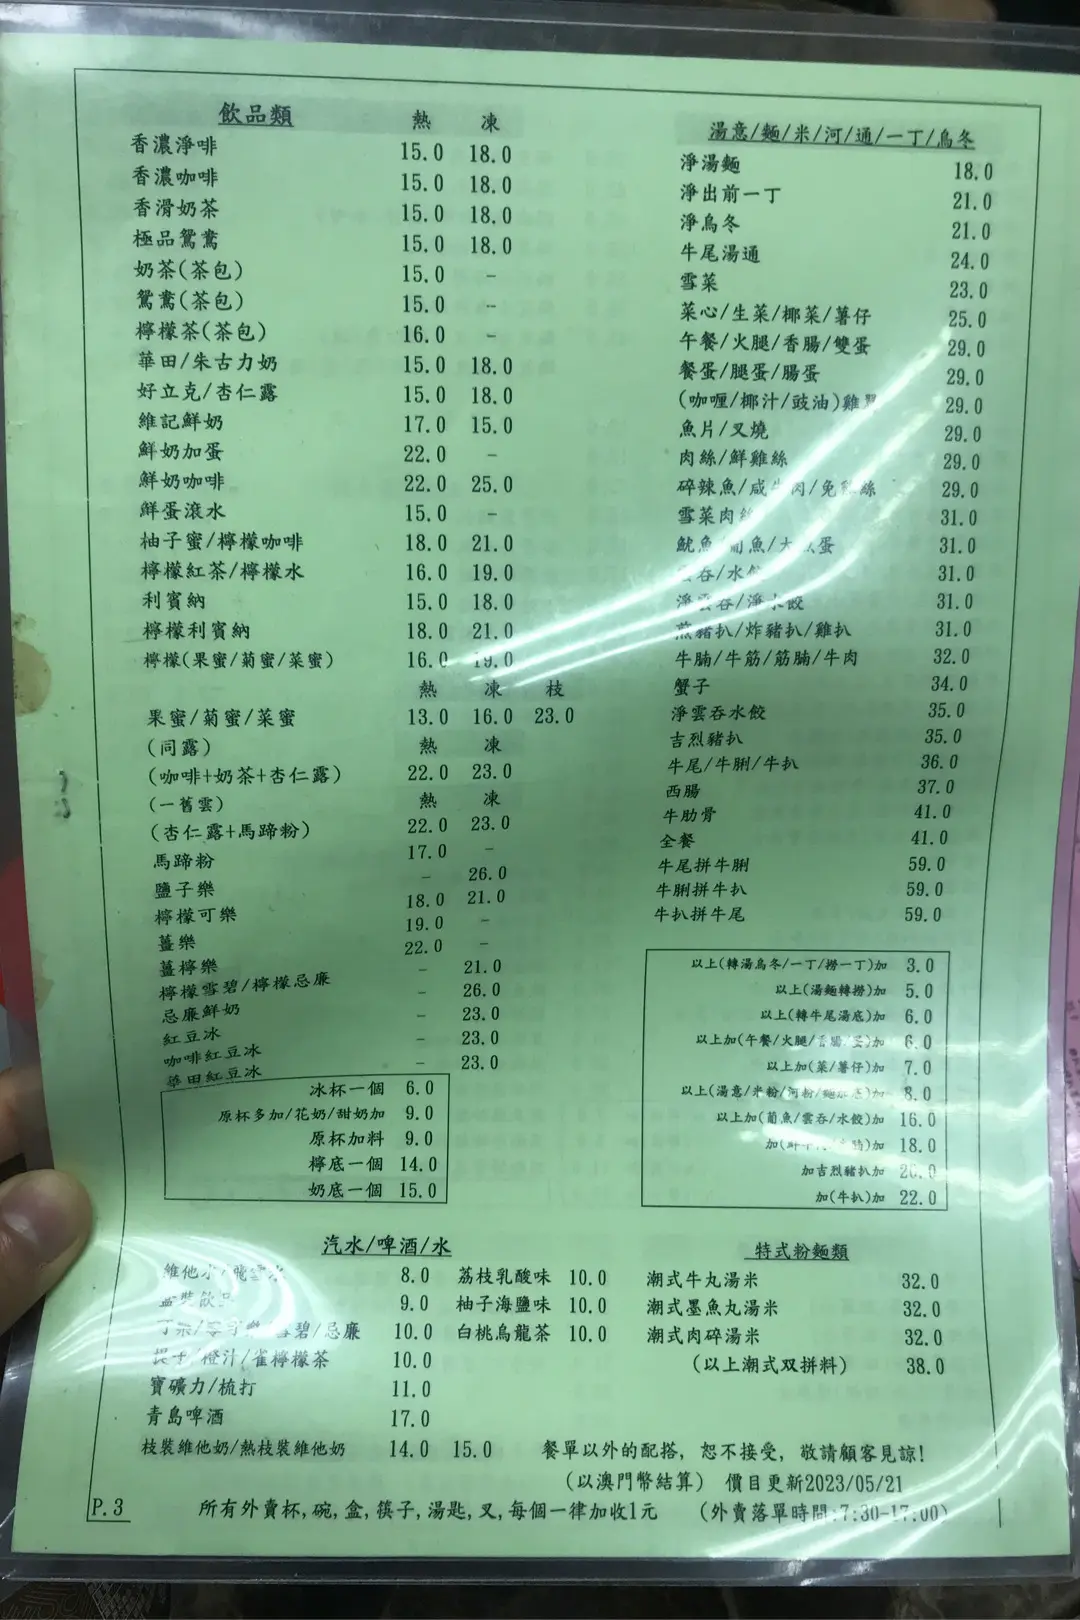 飲品類 熱 凍
香濃淨啡 15.0 18.0
香濃咖啡 15.0 18.0
香滑奶茶 15.0 18.0
極品鴛鴦 15.0 18.0
奶茶(茶包) 15.0 -
鴛鴦(茶包) 15.0 -
檸檬茶(茶包) 16.0 -
華田/朱古力奶 15.0 18.0
好立克/杏仁露 15.0 18.0
維記鮮奶 17.0 15.0
鮮奶加蛋 22.0 -
鮮奶咖啡 22.0 25.0
鮮蛋滾水 15.0 -
柚子蜜/檸檬咖啡 18.0 21.0
檸檬紅茶/檸檬水 16.0 19.0
利賓納 15.0 18.0
檸檬利賓納 18.0 21.0
檸檬(果蜜/菊蜜/菜蜜) 16.0 19.0
熱 凍 枝
果蜜/菊蜜/菜蜜 13.0 16.0 23.0
(同露) 熱 凍
(咖啡+奶茶+杏仁露) 22.0 23.0
(一舊雲) 熱 凍
(杏仁露+馬蹄粉) 22.0 23.0
馬蹄粉 17.0 -
鹽子樂 - 26.0
檸檬可樂 18.0 21.0
薑樂 19.0 -
薑檸樂 22.0 -
檸檬雪碧/檸檬忌廉 - 21.0
忌廉鮮奶 - 26.0
紅豆冰 - 23.0
咖啡紅豆冰 - 23.0
華田紅豆冰 - 23.0
冰杯一個 6.0
原杯多加/花奶/甜奶加 9.0
原杯加料 9.0
檸底一個 14.0
奶底一個 15.0
湯意/麵/米/河/通/一丁/烏冬
淨湯麵 18.0
淨出前一丁 21.0
淨烏冬 21.0
牛尾湯通 24.0
雪菜 23.0
菜心/生菜/椰菜/薯仔 25.0
午餐/火腿/香腸/雙蛋 29.0
餐蛋/腿蛋/腸蛋 29.0
(咖喱/椰汁/豉油)雞 29.0
魚片/叉燒 29.0
肉絲/鮮雞絲 29.0
碎辣魚/咸牛肉/免 絲 29.0
雪菜肉 31.0
魷魚/ 魚/ 蛋 31.0
雲吞/水餃 31.0
淨雲吞/淨水餃 31.0
煎豬扒/炸豬扒/雞扒 31.0
牛腩/牛筋/筋腩/牛肉 32.0
蟹子 34.0
淨雲吞水餃 35.0
吉烈豬扒 35.0
牛尾/牛脷/牛扒 36.0
西腸 37.0
牛肋骨 41.0
全餐 41.0
牛尾拼牛脷 59.0
牛脷拼牛扒 59.0
牛扒拼牛尾 59.0
以上(轉湯烏冬/一丁/撈一丁)加 3.0
以上(湯麵轉撈)加 5.0
以上(轉牛尾湯底)加 6.0
以上加(午餐/火腿/香腸/蛋)加 6.0
以上加(菜/薯仔)加 7.0
以上(湯意/米粉/河粉/麵加底)加 8.0
以上加(葡魚/雲吞/水餃)加 16.0
加( )加 18.0
加吉烈豬扒加 20.0
加(牛扒)加 22.0
汽水/啤酒/水
維他水/飛雪水 8.0 荔枝乳酸味 10.0
盒裝飲品 9.0 柚子海鹽味 10.0
/雪碧/忌廉 10.0 白桃烏龍茶 10.0
提子/橙汁/雀檸檬茶 10.0
寶礦力/梳打 11.0
青島啤酒 17.0
枝裝維他奶/熱枝裝維他奶 14.0 15.0
特式粉麵類
潮式牛丸湯米 32.0
潮式墨魚丸湯米 32.0
潮式肉碎湯米 32.0
(以上潮式双拼料) 38.0
餐單以外的配搭, 恕不接受, 敬請顧客見諒!
(以澳門幣結算) 價目更新2023/05/21
P.3 所有外賣杯,碗,盒,筷子,湯匙,叉,每個一律加收1元 (外賣落單時間:7:30-17:00)